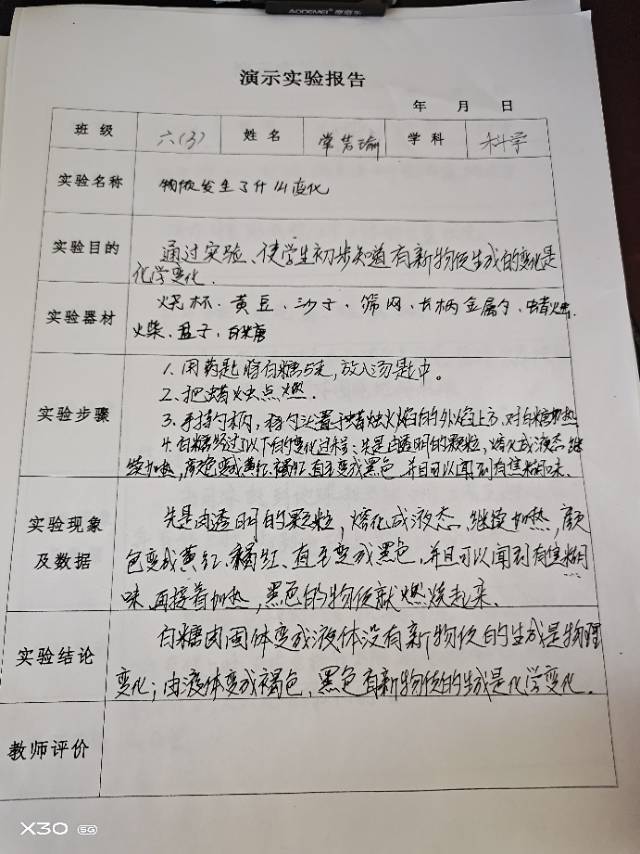 AODEMEI
演示实验报告
年 月 日
班级 六(3) 姓名 常笑瑜 学科 科学
实验名称 物质发生了什么变化
实验目的 通过实验、使学生初步知道有新物质生成的变化是
化学变化.
实验器材 烧杯、黄豆、沙子、筛网、长柄金属勺、蜡烛、
火柴、盘子、白糖
实验步骤
1. 用药匙将白糖 放入汤匙中。
2. 把蜡烛点燃.
3. 手持勺柄,将勺头置于蜡烛火焰的外焰上方,对白糖加热
4. 白糖经过了以下的变化过程:先是由透明的颗粒,熔化成液态继
续加热,颜色变成黄红、橘红、直至变成黑色,并且可以闻到有焦糊味.
实验现象及数据
先是由透明的颗粒,熔化成液态、继续加热,颜
色变成黄红、橘红、直至变成黑色、并且可以闻到有焦糊
味.再接着加热,黑色的物质就燃烧起来.
实验结论
白糖由固体变成液体没有新物质的生成是物理
变化;由液体变成褐色、黑色有新物质的生成是化学变化.
教师评价
X30 5G